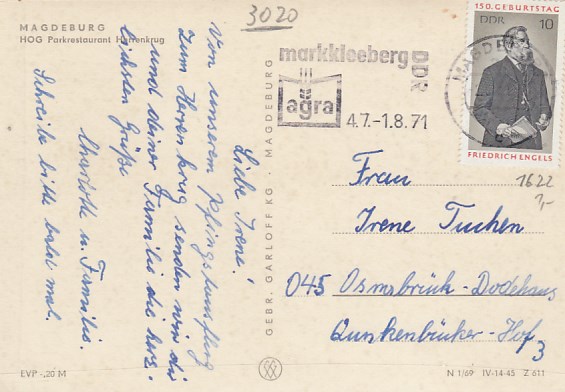 MAGDEBURG
HOG Parkrestaurant Herrenkrug
3020
Liebe Irene!
Von unserem Pfingstausflug
zum Herrenkrug senden wir dir
und deiner Familie die herz-
lichsten Grüße
Charlotte u. Familie.
Schreibe bitte bald mal.
GEBR. GARLOFF KG · MAGDEBURG
markkleeberg DDR
agra
4.7.-1.8.71
MAGDE
150. GEBURTSTAG
DDR 10
FRIEDRICH ENGELS
1622
1,-
Frau
Irene Tuchen
045 Osmsbrück-Dodehaus
Qunkenbücker-Hof 3
EVP -,20 M
N 1/69 IV-14-45 Z 611